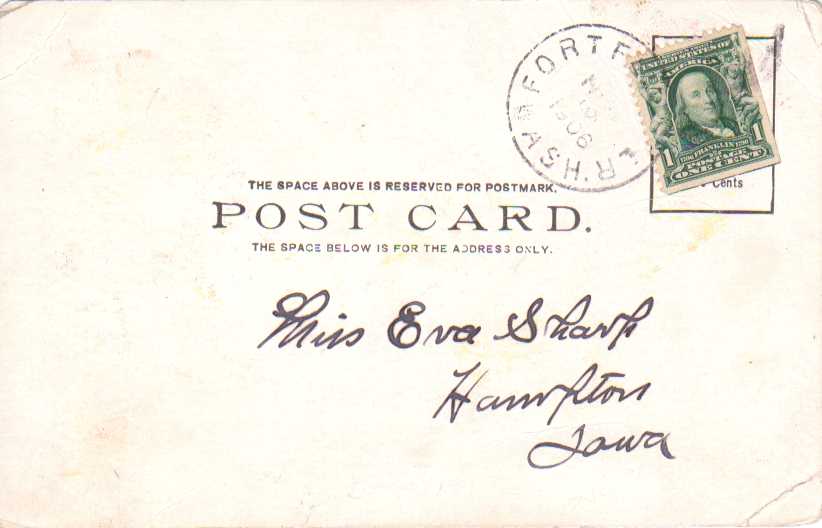 FORT
WASH
1906
UNITED STATES OF
AMERICA
1 1
1706 FRANKLIN 1790
POSTAGE
ONE CENT
Cents
THE SPACE ABOVE IS RESERVED FOR POSTMARK.
POST CARD.
THE SPACE BELOW IS FOR THE ADDRESS ONLY.
Miss Eva Sharp
Hampton
Iowa